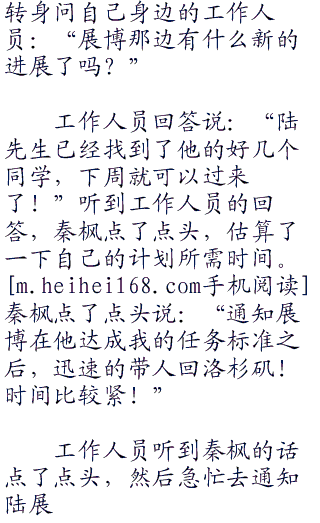 转身问自己身边的工作人
员：“展博那边有什么新的
进展了吗？”
工作人员回答说：“陆
先生已经找到了他的好几个
同学，下周就可以过来
了！”听到工作人员的回
答，秦枫点了点头，估算了
一下自己的计划所需时间。
[m.heihei168.com手机阅读]
秦枫点了点头说：“通知展
博在他达成我的任务标准之
后，迅速的带人回洛杉矶！
时间比较紧！”
工作人员听到秦枫的话
点了点头，然后急忙去通知
陆展